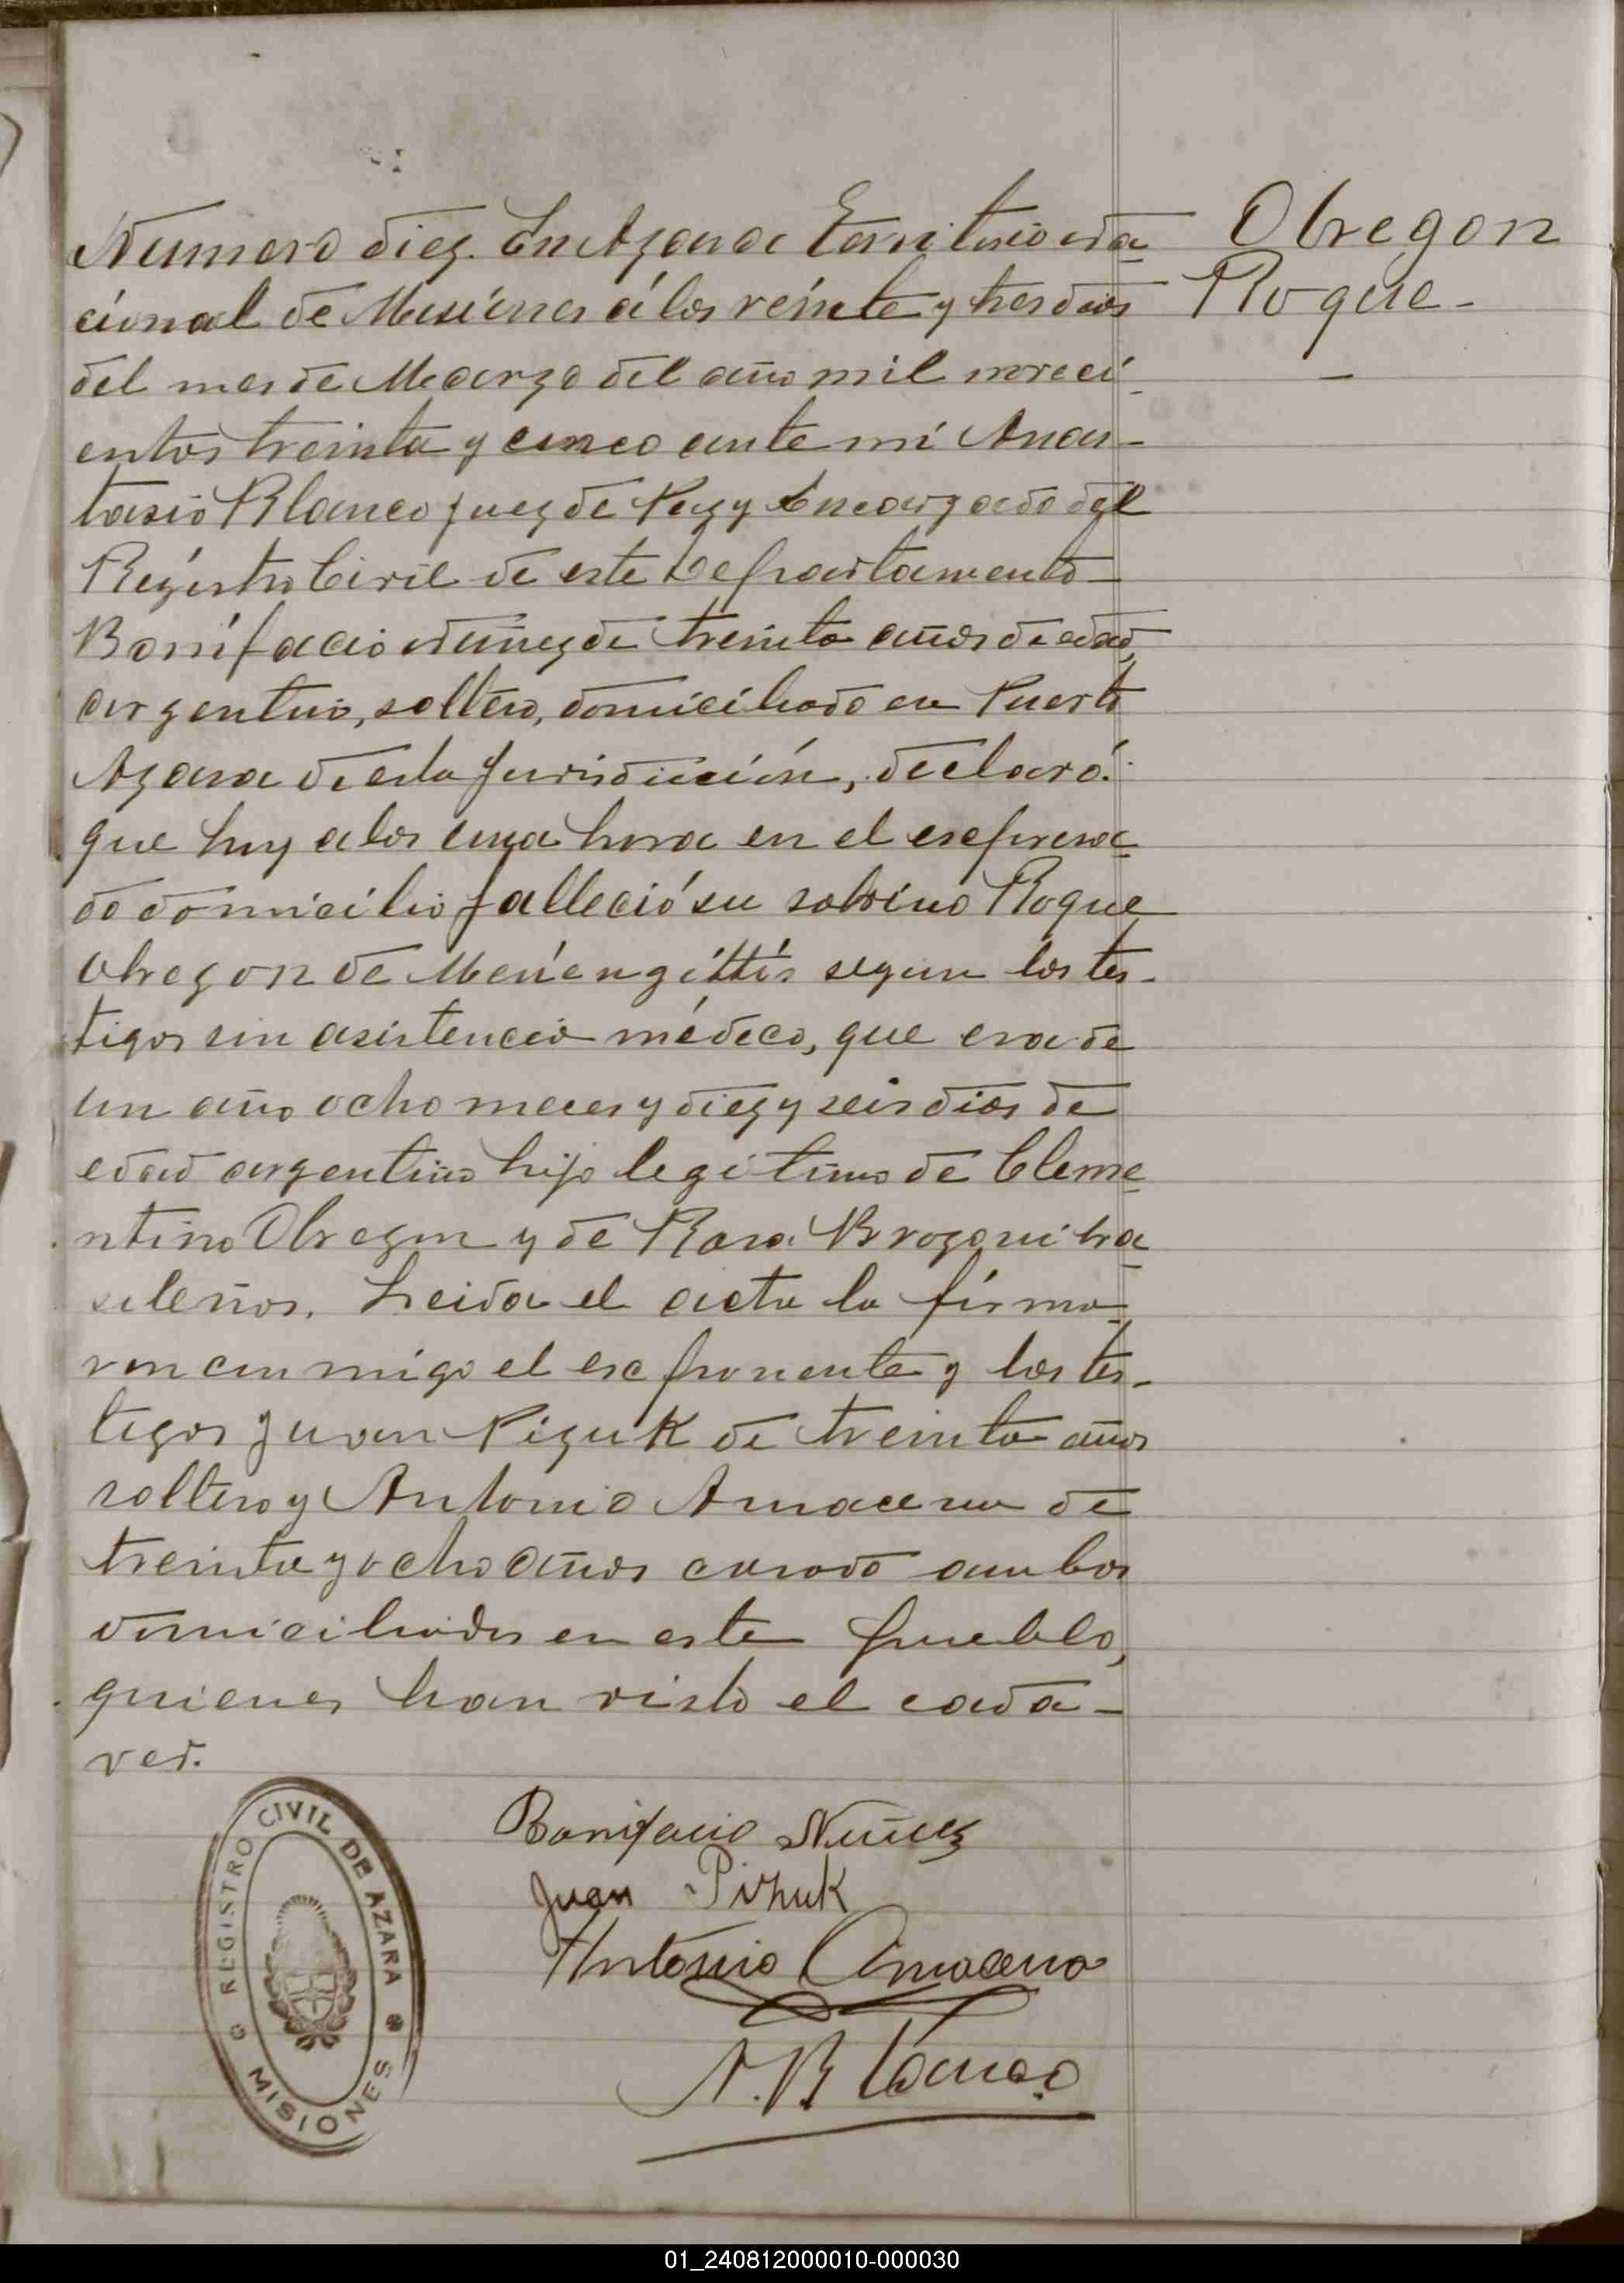 Obregon
Roque-
Numero diez. En Azara Territorio Na
cional de Misiones á los veinte y tres dias
del mes de Marzo del año mil noveci
entos treinta y cinco ante mi Anas-
tasio Blanco Juez de Paz y Encargado del
Registro Civil de este Departamento
Bonifacio Nuñez de treinta años de edad,
argentino, soltero, domiciliado en Puerto
Azara de esta Jurisdicción, declaró:
que hoy a las una hora en el expresa
do domicilio falleció su sobrino Roque
Obregon de Meniengittis segun los tes-
tigos sin asistencia médica, que era de
un año ocho meses y diez y seis dias de
edad argentino hijo legitimo de Cleme
ntino Obregon y de Rosa bra
sileños. Leida el acta la firma
ron conmigo el exponente y los tes-
tigos Juan Pizuk de treinta años
soltero y Antonio Amacena de
treinta y ocho años casado ambos
domiciliados en este pueblo,
quienes han visto el cada-
ver.
Bonifacio Nuñez
Juan Pizuk
Antonio Amacena
A. Blanco
REGISTRO CIVIL DE AZARA
MISIONES
01_240812000010-000030